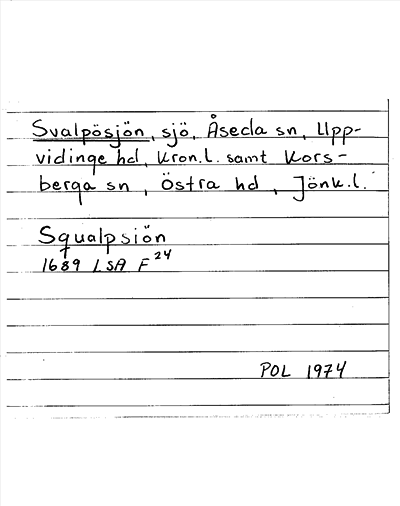 Svalpösjön, sjö, Åseda sn, Upp-
vidinge hd, Kron.l. samt Kors-
berga sn, Östra hd, Jönk.l.
Squalpsiön
1689 LSA F24
POL 1974